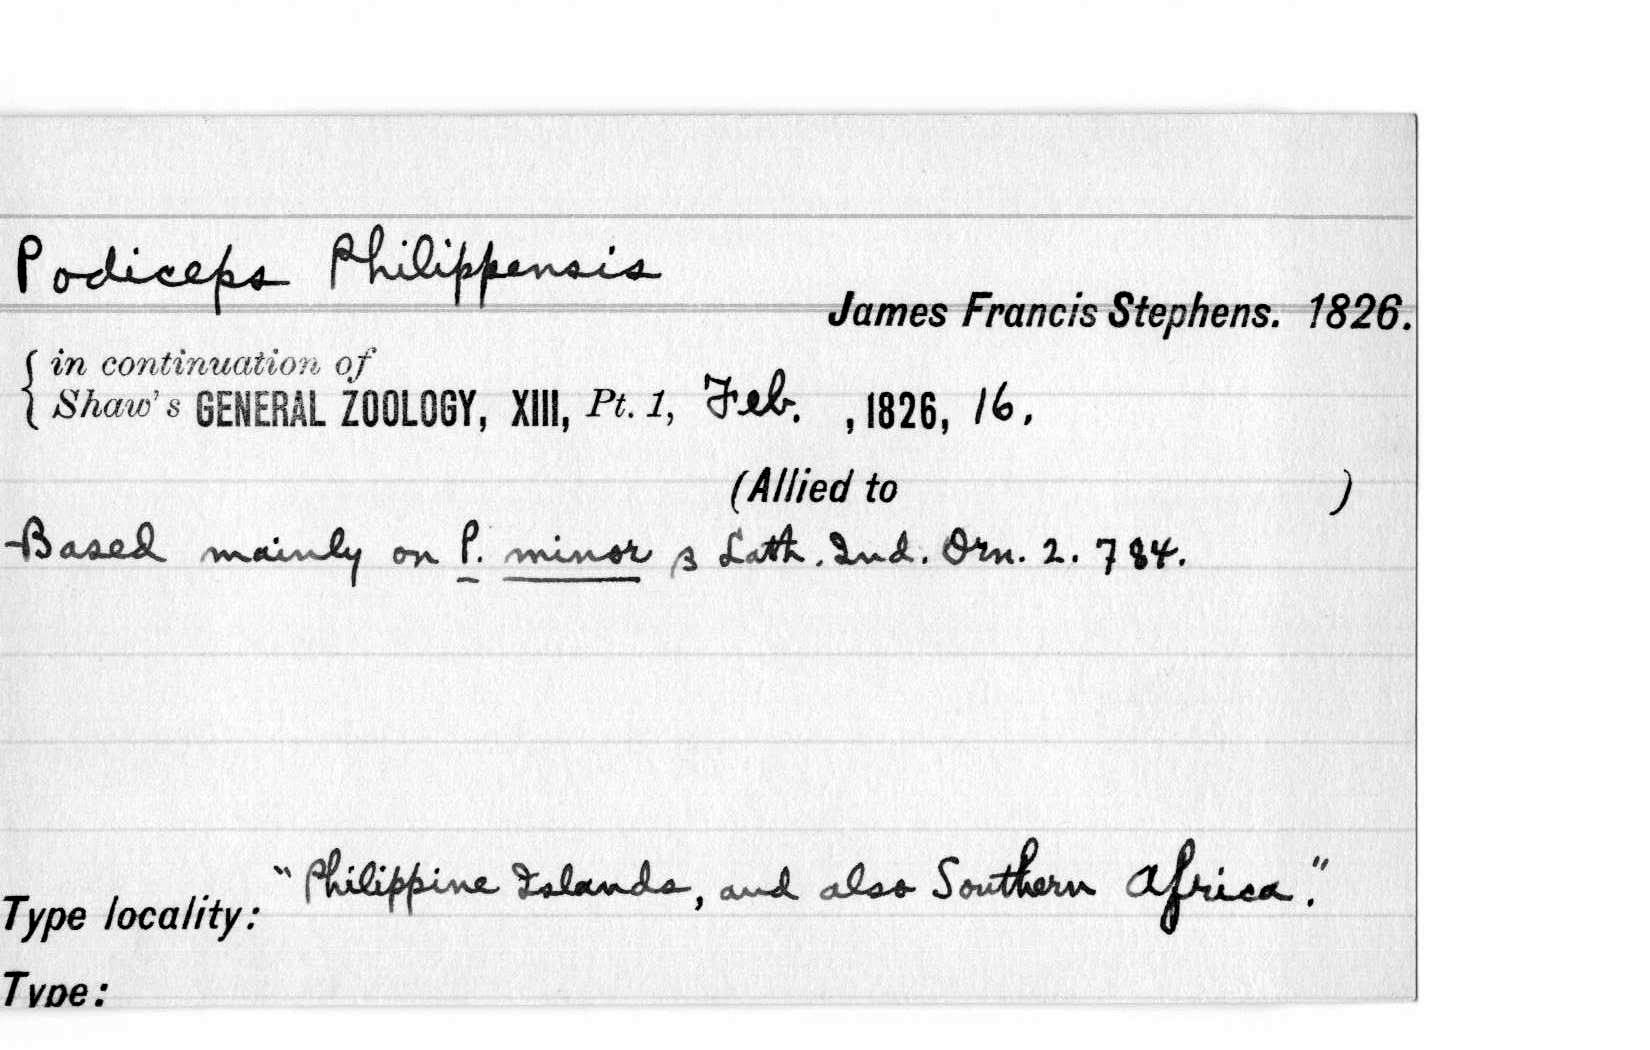 Podiceps Philippensis
James Francis Stephens. 1826.
{ in continuation of
Shaw's GENERAL ZOOLOGY, XIII, Pt. 1, Feb. , 1826, 16.
(Allied to )
Based mainly on P. minor β Lath. Ind. Orn. 2. 784.
Type locality: "Philippine Islands, and also Southern Africa."
Type: